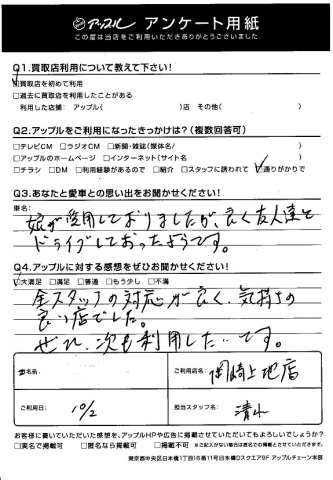 アップル アンケート用紙
この度は当店をご利用いただきありがとうございました
Q1.買取店利用について教えて下さい!
□買取店を初めて利用
□過去に買取店を利用したことがある
利用した店舗: アップル( )店 その他( )
Q2.アップルをご利用になったきっかけは?(複数回答可)
□テレビCM □ラジオCM □新聞・雑誌(媒体名/ )
□アップルのホームページ □インターネット(サイト名 )
□チラシ □DM □利用経験があるので □紹介 □スタッフに誘われて ☑通りがかりで
Q3.あなたと愛車との思い出をお聞かせください!
車名:
娘が愛用しておりましたが、良く友人達と
ドライブしておったようです。
Q4.アップルに対する感想をぜひお聞かせください!
☑大満足 □満足 □普通 □もう少し □不満
全スタッフの対応が良く、気持ちの
良い店でした。
ぜひ、次も利用したいです。
お名前:
ご利用店名: 岡崎上地店
ご利用日: 10/2
担当スタッフ名: 清水
お客様に書いていただいた感想を、アップルHPや広告に掲載させていただいてもよろしいでしょうか?
□実名で掲載可 □匿名なら掲載可 □掲載不可 ※ご記入がない場合は匿名での掲載とさせていただきます。
東京都中央区日本橋1丁目16番11号日本橋Dスクエア9F アップルチェーン本部